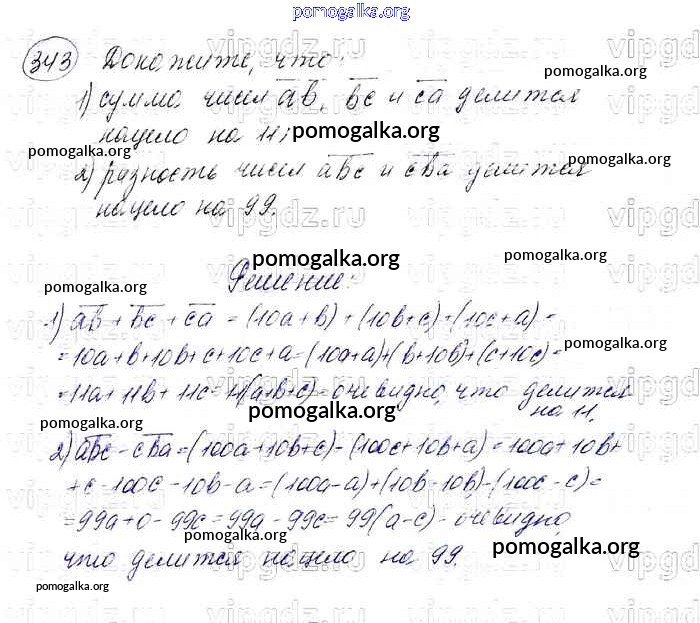 pomogalka.org
343 Докажите, что:
pomogalka.org
1) сумма чисел a̅b̅, b̅c̅ и c̅a̅ делится
нацело на 11; pomogalka.org
pomogalka.org
2) разность чисел a̅b̅c̅ и c̅b̅a̅ делится
pomogalka.org
нацело на 99.
vipgdz.ru
pomogalka.org pomogalka.org pomogalka.org
Решение:
1) a̅b̅ + b̅c̅ + c̅a̅ = (10a+b) + (10b+c) + (10c+a) =
pomogalka.org
= 10a+b+10b+c+10c+a = (10a+a)+(b+10b)+(c+10c) =
= 11a+11b+11c = 11(a+b+c) - очевидно, что делится
pomogalka.org на 11.
2) a̅b̅c̅ - c̅b̅a̅ = (100a+10b+c) - (100c+10b+a) = 100a+10b+
+c-100c-10b-a = (100a-a)+(10b-10b)-(100c-c) =
= 99a+0-99c = 99a-99c = 99(a-c) - очевидно,
pomogalka.org pomogalka.org
что делится нацело на 99.
pomogalka.org